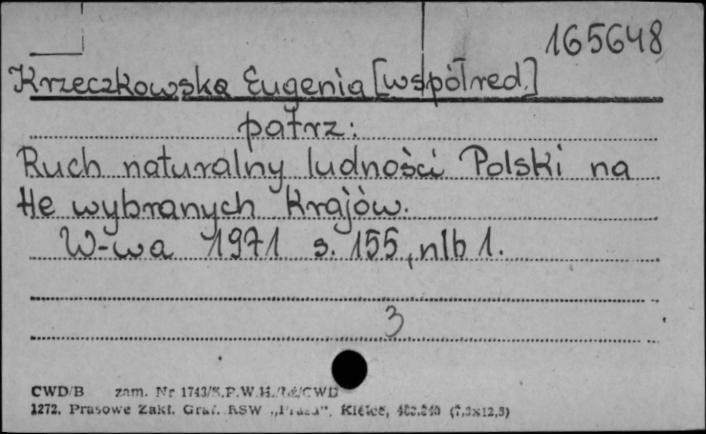 165648
Krzeczkowska Eugenia [współred.]
patrz:
Ruch naturalny ludności Polski na
tle wybranych Krajów.
W-wa 1971 s. 155, nlb 1.
3
CWD/B zam. Nr 1743/
1272. Prasowe Zakł. Graf. RSW „Prasa", Kielce,